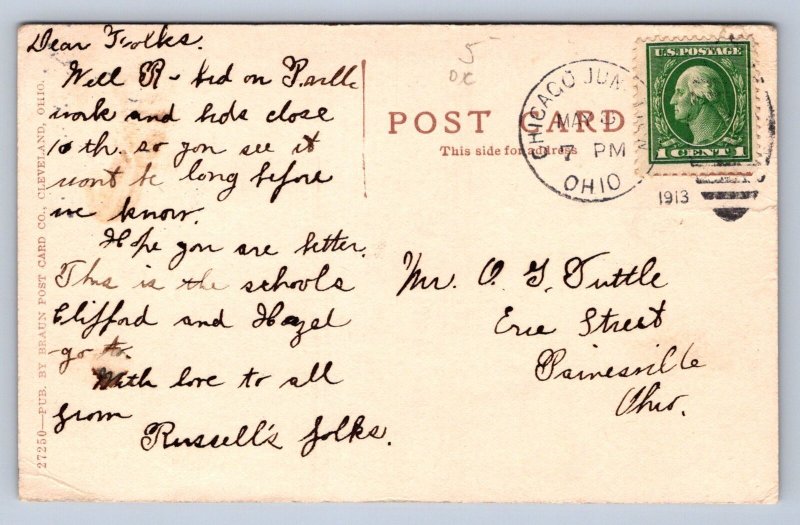 Dear Folks.
Will R- bid on
work and bids close
10 th. so you see it
wont be long before
we know.
Hope you are better.
This is the schools
Clifford and Hazel
go to.
With love to all
from
Russell's folks.
27250—PUB. BY BRAUN POST CARD CO., CLEVELAND, OHIO.
5
POST CARD
This side for address
CHICAGO JUNCTION
MAY
7 PM
OHIO
1913
U.S. POSTAGE
1 CENT 1
Mr. O. G. Tuttle
Erie Street
Painesville
Ohio.